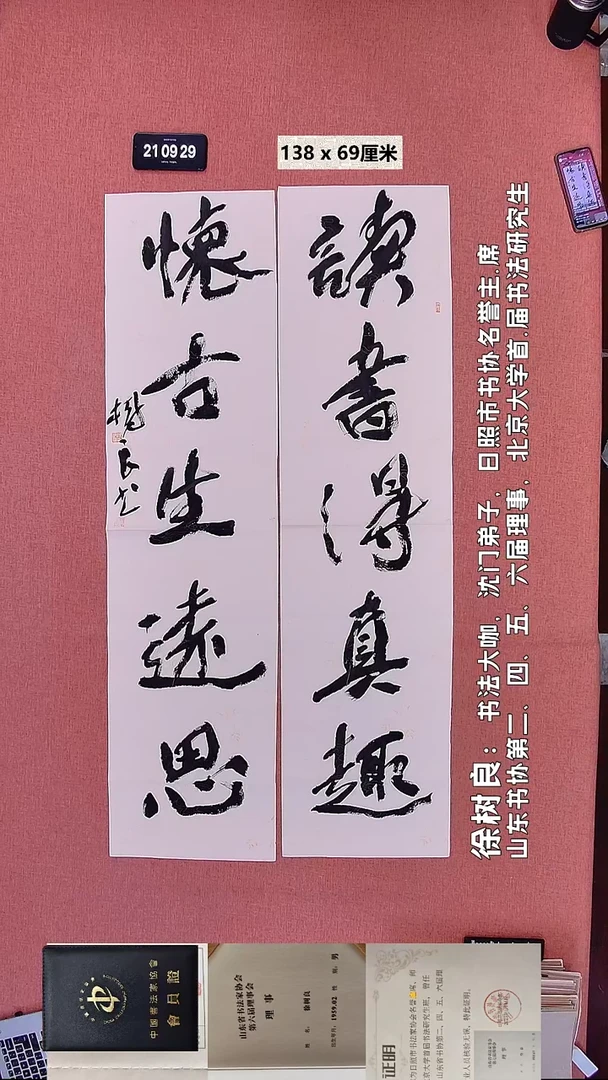 21 09 29
138 x 69厘米
讀書得真趣
懷古生遠思
樹良书
徐树良：书法大咖，沈门弟子，日照市书协名誉主.席
山东书协第二、四、五、六届理事，北京大学首.届书法研究生
中国書法家協會
會員證
山东省书法家协会
第六届理事会
理 事
姓 名：徐树良
性 别：男
出生年月：1959.02
证明